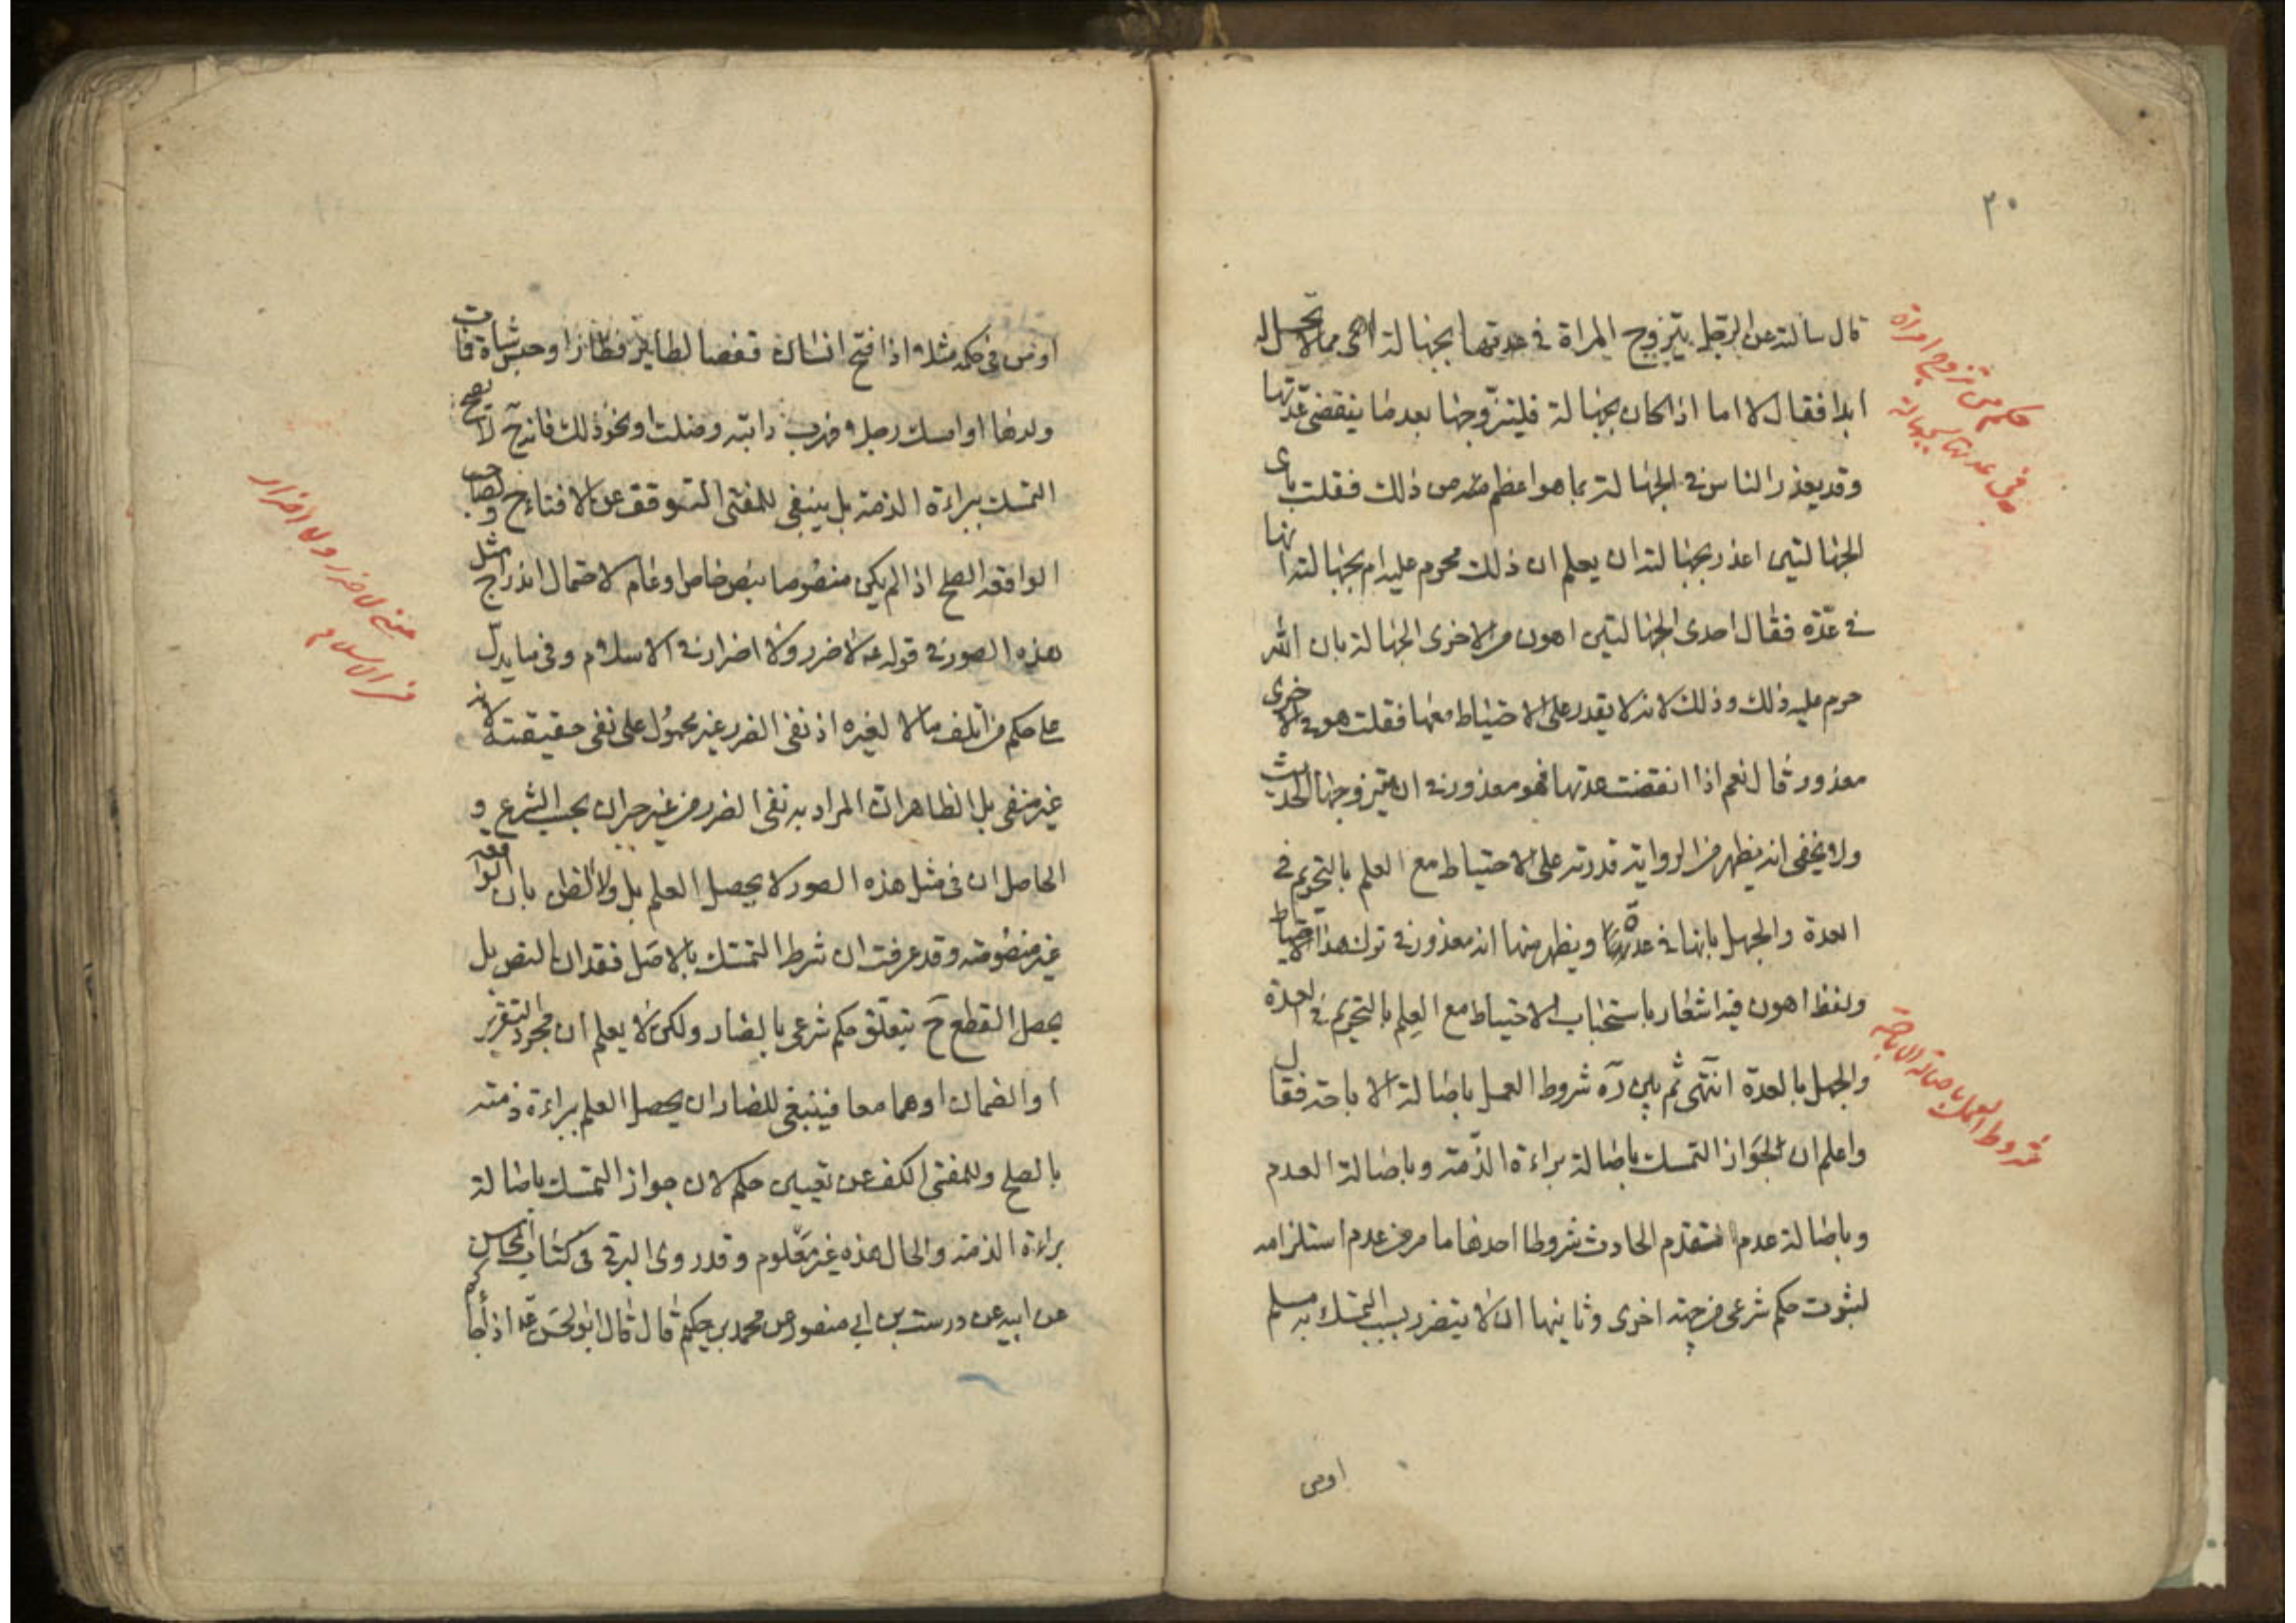 ٣٠
قال سالته عن الرجل يتزوج المراة فى عدتها بجهالة اهى ممن لا تحل له
ابدا فقال لا اما اذا كان بجهالة فليتزوجها بعد ما ينقضى عدتها
وقد يعذر الناس فى الجهالة بما هو اعظم من ذلك فقلت باى
الجهالتين اعذر بجهالته ان يعلم ان ذلك محرم عليه ام بجهالته انها
فى عدة فقال احدى الجهالتين اهون من الاخرى الجهالة بان الله
حرم عليه ذلك وذلك لانه لا يقدر على الاحتياط معها فقلت هو فى الاخرى
معذور قال نعم اذا انقضت عدتها فهو معذور فى ان يتزوجها الحديث
ولا يخفى انه يظهر من الرواية قدرته على الاحتياط مع العلم بالتحريم فى
العدة والجهل بانها فى عدة ويظهر منها انه معذور فى ترك هذا الاحتياط
ولفظ اهون فيه اشعار باستحباب الاحتياط مع العلم بالتحريم فى العدة
والجهل بالعدة انتهى ثم بين ره شروط العمل باصالة الاباحة فقال
واعلم ان لجواز التمسك باصالة براءة الذمة وباصالة العدم
وباصالة عدم تقدم الحادث شروطا احدها ما مر من عدم استلزامه
لثبوت حكم شرعى من جهة اخرى وثانيها ان لا يتضرر بسبب التمسك به مسلم
اومن
حكم من تزوج امراة
فى عدتها بجهالة
شروط العمل باصالة الاباحة
اومن فى حكمه مثلا اذا فتح انسان قفصا لطاير فطار او حبس شاة فمات
ولدها او امسك رجلا فهرب دابته وضلت او نحو ذلك فانه ح لا يصح
التمسك ببراءة الذمة بل ينبغى للمفتى التوقف عن الافتاء ح ولصاحب
الواقعة الصلح اذا لم يكن منصوصا بنص خاص او عام لاحتمال اندراج مثل
هذه الصور فى قوله ع لا ضرر ولا اضرار فى الاسلام وفى ما يدل
على حكم من اتلف مالا لغيره اذ نفى الضرر غير محمول على نفى حقيقته لانه
غير منفى بل الظاهر ان المراد به نفى الضرر من غير جبران بحسب الشرع و
الحاصل ان فى مثل هذه الصور لا يحصل العلم بل ولا الظن بان الواقعة
غير منصوصة وقد عرفت ان شرط التمسك بالاصل فقدان النص بل
يحصل القطع ح بتعلق حكم شرعى بالضار ولكن لا يعلم ان مجرد التعزير
او الضمان او هما معا فينبغى للضار ان يحصل العلم ببراءة ذمته
بالصلح وللمفتى الكف عن تعيين حكم لان جواز التمسك باصالة
براءة الذمة والحال هذه غير معلوم وقد روى البرقى فى كتاب المحاسن
عن ابيه عن درست بن ابى منصور عن محمد بن حكيم قال قال ابو الحسن ع اذا جاءكم
معنى لا ضرر ولا اضرار
فى الاسلام